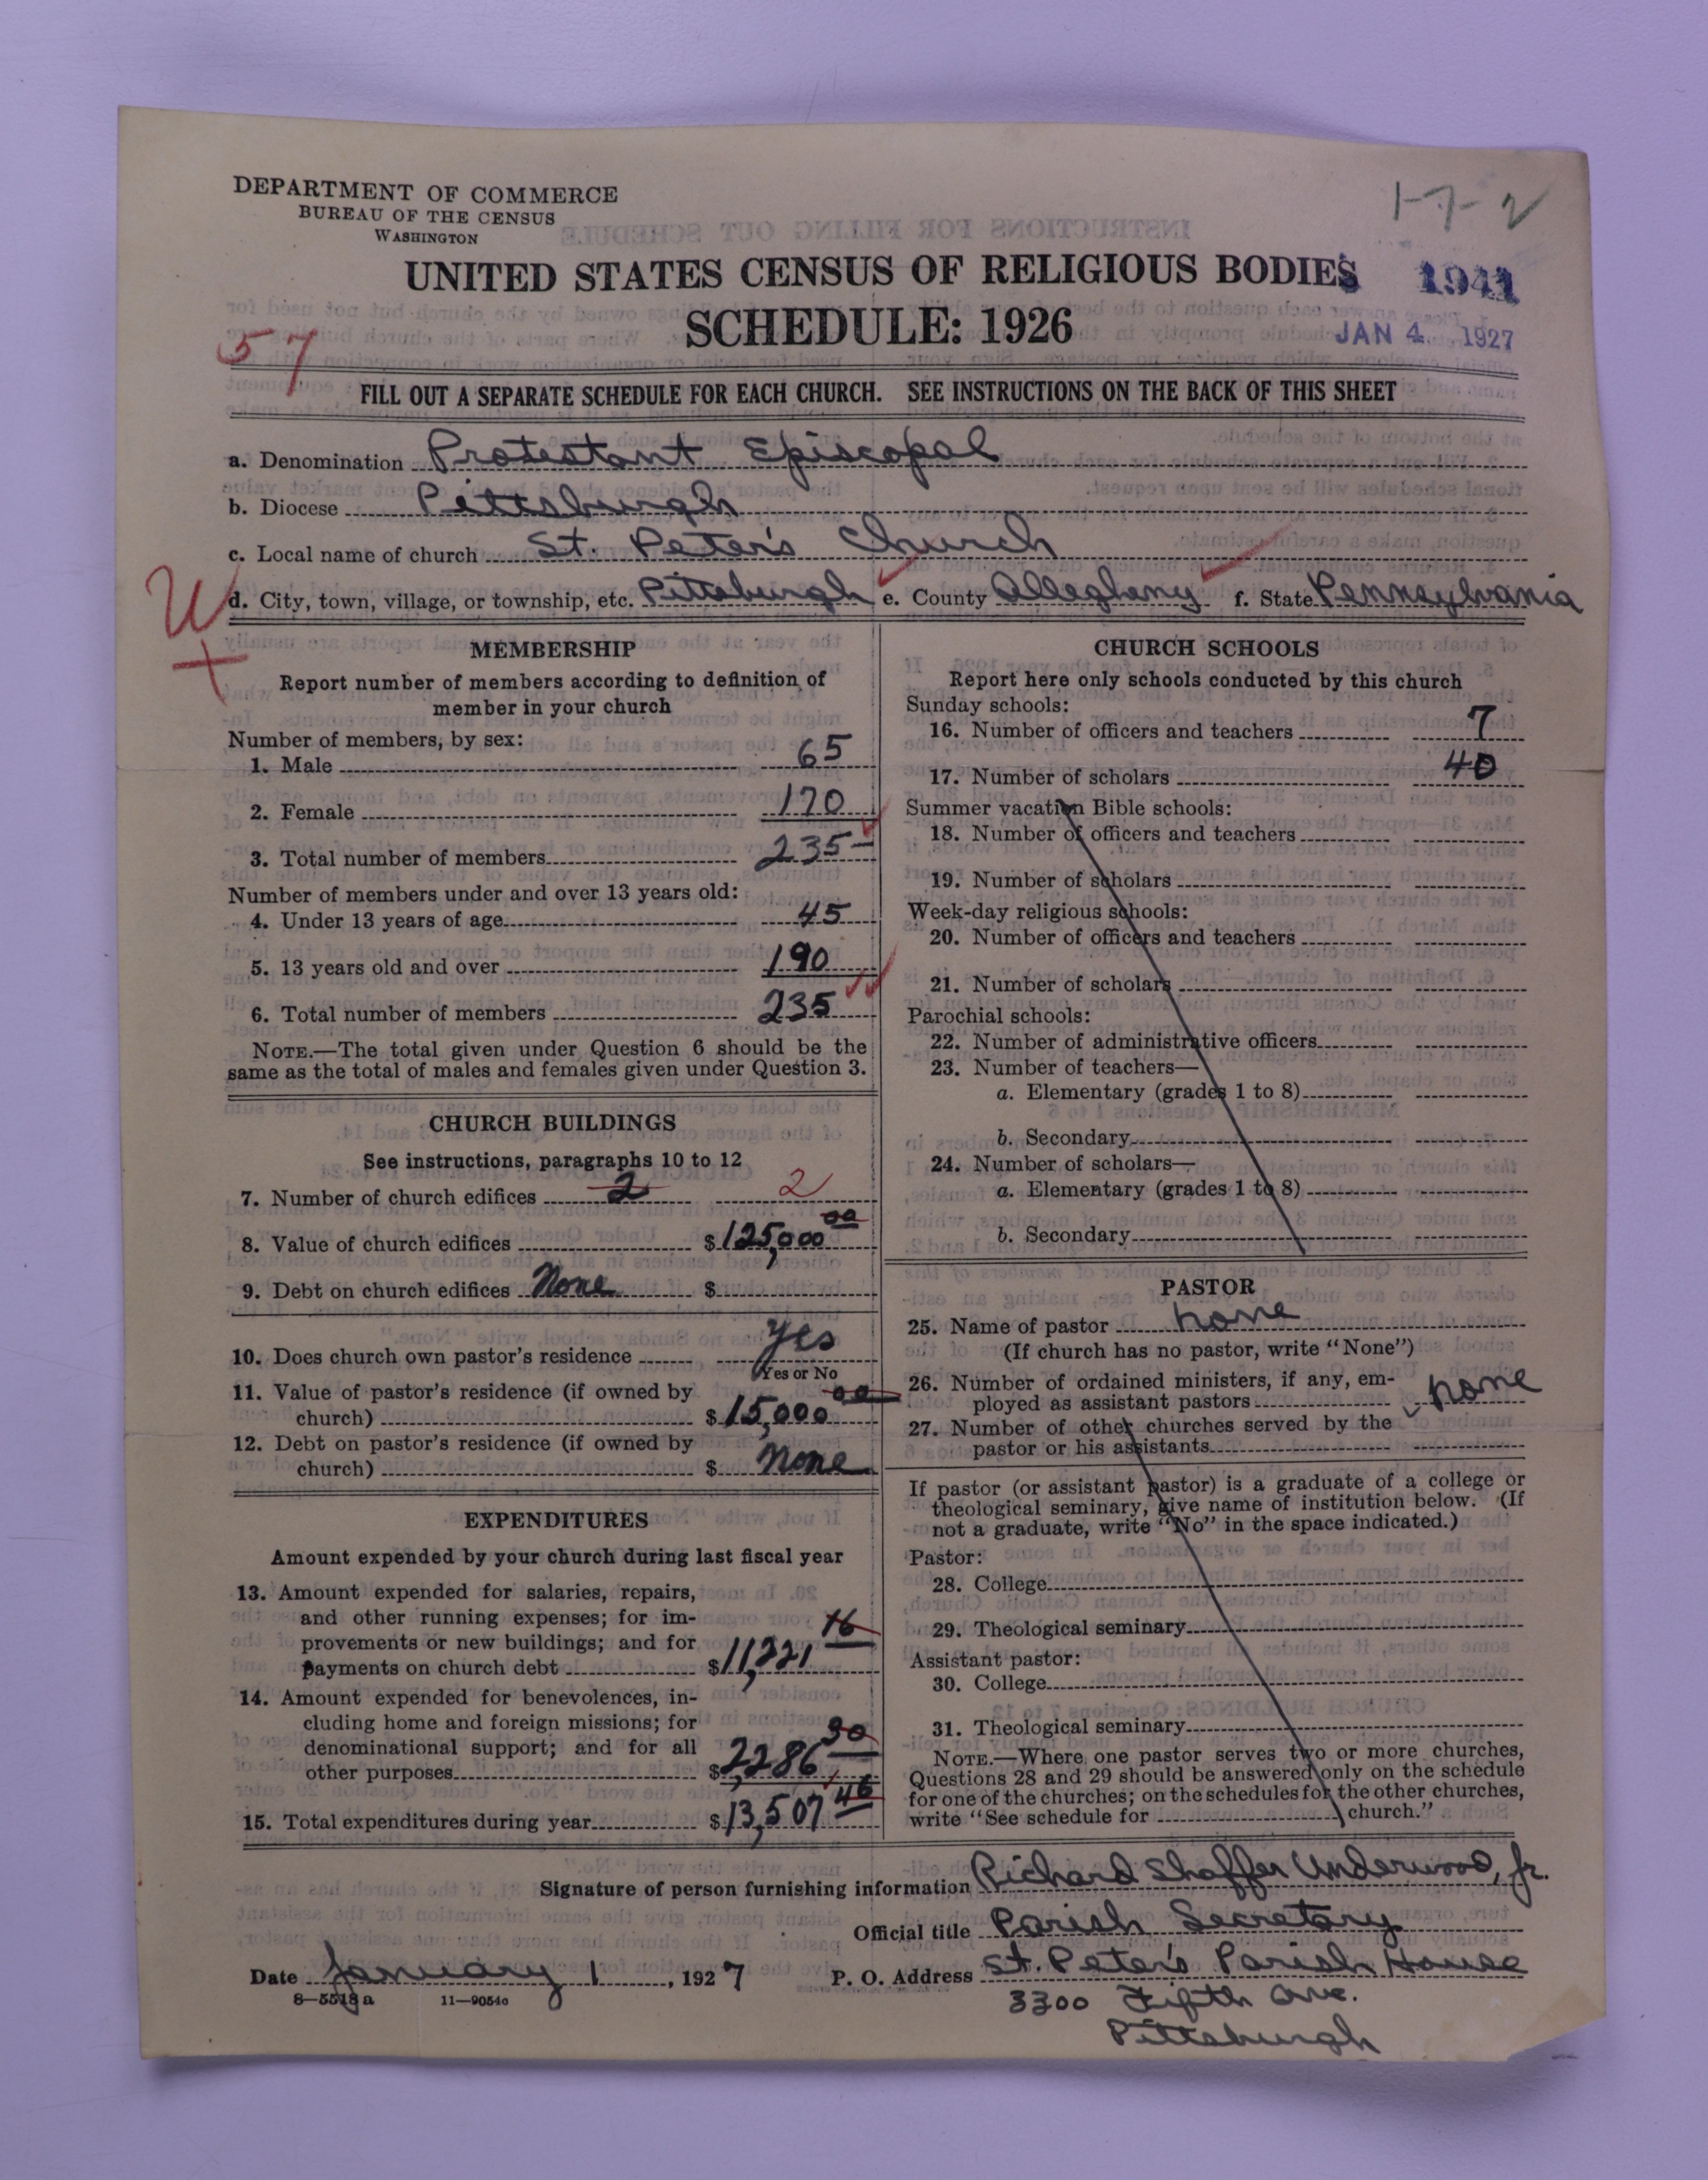 DEPARTMENT OF COMMERCE
BUREAU OF THE CENSUS
WASHINGTON
1-7-2
UNITED STATES CENSUS OF RELIGIOUS BODIES
1941
SCHEDULE: 1926
JAN 4 1927
57
FILL OUT A SEPARATE SCHEDULE FOR EACH CHURCH. SEE INSTRUCTIONS ON THE BACK OF THIS SHEET
a. Denomination Protestant Episcopal
b. Diocese Pittsburgh
c. Local name of church St. Peter's Church
d. City, town, village, or township, etc. Pittsburgh e. County Allegheny f. State Pennsylvania
MEMBERSHIP
Report number of members according to definition of
member in your church
Number of members, by sex:
1. Male 65
2. Female 170
3. Total number of members 235
Number of members under and over 13 years old:
4. Under 13 years of age 45
5. 13 years old and over 190
6. Total number of members 235
NOTE.—The total given under Question 6 should be the
same as the total of males and females given under Question 3.
CHURCH BUILDINGS
See instructions, paragraphs 10 to 12
7. Number of church edifices 2 2
8. Value of church edifices $125,000 00
9. Debt on church edifices None $
10. Does church own pastor's residence Yes
Yes or No
11. Value of pastor's residence (if owned by
church) $15,000 00
12. Debt on pastor's residence (if owned by
church) $ None
EXPENDITURES
Amount expended by your church during last fiscal year
13. Amount expended for salaries, repairs,
and other running expenses; for im-
provements or new buildings; and for
payments on church debt $11,221 16
14. Amount expended for benevolences, in-
cluding home and foreign missions; for
denominational support; and for all
other purposes $2,286 30
15. Total expenditures during year $13,507 46
CHURCH SCHOOLS
Report here only schools conducted by this church
Sunday schools:
16. Number of officers and teachers 7
17. Number of scholars 40
Summer vacation Bible schools:
18. Number of officers and teachers
19. Number of scholars
Week-day religious schools:
20. Number of officers and teachers
21. Number of scholars
Parochial schools:
22. Number of administrative officers
23. Number of teachers—
a. Elementary (grades 1 to 8)
b. Secondary
24. Number of scholars—
a. Elementary (grades 1 to 8)
b. Secondary
PASTOR
25. Name of pastor none
(If church has no pastor, write "None")
26. Number of ordained ministers, if any, em-
ployed as assistant pastors none
27. Number of other churches served by the
pastor or his assistants
If pastor (or assistant pastor) is a graduate of a college or
theological seminary, give name of institution below. (If
not a graduate, write "No" in the space indicated.)
Pastor:
28. College
29. Theological seminary
Assistant pastor:
30. College
31. Theological seminary
NOTE.—Where one pastor serves two or more churches,
Questions 28 and 29 should be answered only on the schedule
for one of the churches; on the schedules for the other churches,
write "See schedule for church."
Signature of person furnishing information Richard Shaffer Underwood, Jr.
Official title Parish Secretary
Date January 1, 1927 P. O. Address St. Peter's Parish House
8—5518a 11—9054c
3300 Fifth Ave.
Pittsburgh